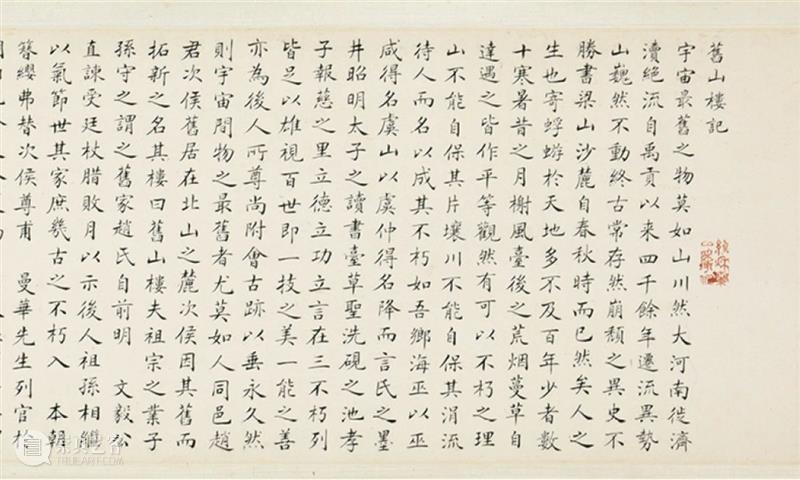 舊山樓記
宇宙最舊之物莫如山川然大河南徙濟
瀆絕流自禹貢以來四千餘年遷流異勢
山巍然不動終古常存然崩頽之異史不
勝書梁山沙麓自春秋時而已然矣人之
生也寄蜉蝣於天地多不及百年少者數
十寒暑昔之月榭風臺後之荒烟蔓草自
達遇之皆作平等觀然有可以不朽之理
山不能自保其片壤川不能自保其涓流
待人而名以成其不朽如吾鄉海巫以巫
咸得名虞山以虞仲得名降而言氏之墨
井昭明太子之讀書臺草聖洗硯之池孝
子報慈之里立德立功立言在三不朽列
皆足以雄視百世即一技之美一能之善
亦為後人所尊尚附會古跡以垂永久然
則宇宙間物之最舊者尤莫如人同邑趙
君次侯舊居在北山之麓次侯因其舊而
拓新之名其樓曰舊山樓夫祖宗之業子
孫守之謂之舊家趙氏自前明 文毅公
直諫受廷杖腊敗月以示後人祖孫相繼
以氣節世其家庶幾古之不朽入 本朝
簪纓弗替次侯尊甫 曼華先生列官於
崇真艺客
TRUEART.COM